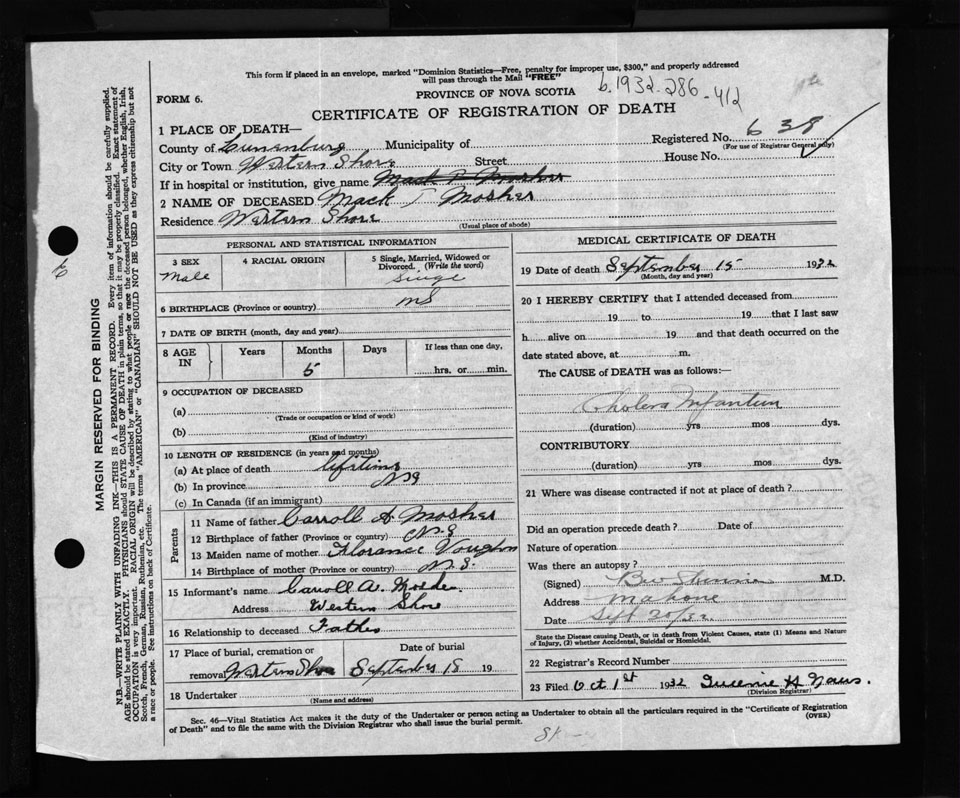 This form if placed in an envelope, marked "Dominion Statistics—Free, penalty for improper use, $300," and properly addressed
will pass through the Mail "FREE"
b.1932-286-412
FORM 6.
PROVINCE OF NOVA SCOTIA
CERTIFICATE OF REGISTRATION OF DEATH
1 PLACE OF DEATH—
Registered No. 638
(For use of Registrar General only)
County of Lunenburg Municipality of
City or Town Western Shore Street House No.
If in hospital or institution, give name Mack T Mosher
2 NAME OF DECEASED Mack T Mosher
Residence Western Shore
(Usual place of abode)
PERSONAL AND STATISTICAL INFORMATION
3 SEX 4 RACIAL ORIGIN 5 Single, Married, Widowed or
Divorced. (Write the word)
Male Singe
6 BIRTHPLACE (Province or country) NS
7 DATE OF BIRTH (month, day and year)
8 AGE IN Years Months Days If less than one day,
5 hrs. or min.
9 OCCUPATION OF DECEASED
(a)
(Trade or occupation or kind of work)
(b)
(Kind of industry)
10 LENGTH OF RESIDENCE (in years and months)
(a) At place of death lifetime
(b) In province NS
(c) In Canada (if an immigrant)
Parents
11 Name of father Carroll A Mosher
12 Birthplace of father (Province or country) N.S
13 Maiden name of mother Florance Vaughn
14 Birthplace of mother (Province or country) N.S.
15 Informant's name Carroll A. Mosher
Address Western Shore
16 Relationship to deceased Father
17 Place of burial, cremation or Date of burial
removal Western Shore September 18 19
18 Undertaker
(Name and address)
MEDICAL CERTIFICATE OF DEATH
19 Date of death September 15 1932
(Month, day and year)
20 I HEREBY CERTIFY that I attended deceased from
19 to 19 that I last saw
h alive on 19 and that death occurred on the
date stated above, at m.
The CAUSE of DEATH was as follows:—
Cholera Infantum
(duration) yrs mos dys.
CONTRIBUTORY
(duration) yrs mos dys.
21 Where was disease contracted if not at place of death?
Did an operation precede death? Date of
Nature of operation
Was there an autopsy?
(Signed) M.D.
Address Mahone
Date Sept 20/32
State the Disease causing Death, or in death from Violent Causes, state (1) Means and Nature
of Injury, (2) whether Accidental, Suicidal or Homicidal.
22 Registrar's Record Number
23 Filed Oct 1st 1932
(Division Registrar)
Sec. 46—Vital Statistics Act makes it the duty of the Undertaker or person acting as Undertaker to obtain all the particulars required in the "Certificate of Registration
of Death" and to file the same with the Division Registrar who shall issue the burial permit.
(OVER)
MARGIN RESERVED FOR BINDING
N.B.—WRITE PLAINLY WITH UNFADING INK—THIS IS A PERMANENT RECORD. Every item of information should be carefully supplied.
AGE should be stated EXACTLY. PHYSICIANS should STATE CAUSE OF DEATH in plain terms, so that it may be properly classified. Exact statement of
OCCUPATION is very important. RACIAL ORIGIN will be described by stating to what people or race the deceased person belonged, whether English, Irish,
Scotch, French, German, Russian, Ruthenian, etc. The terms "AMERICAN" or "CANADIAN" SHOULD NOT BE USED as they express citizenship but not
a race or people. See instructions on back of Certificate.